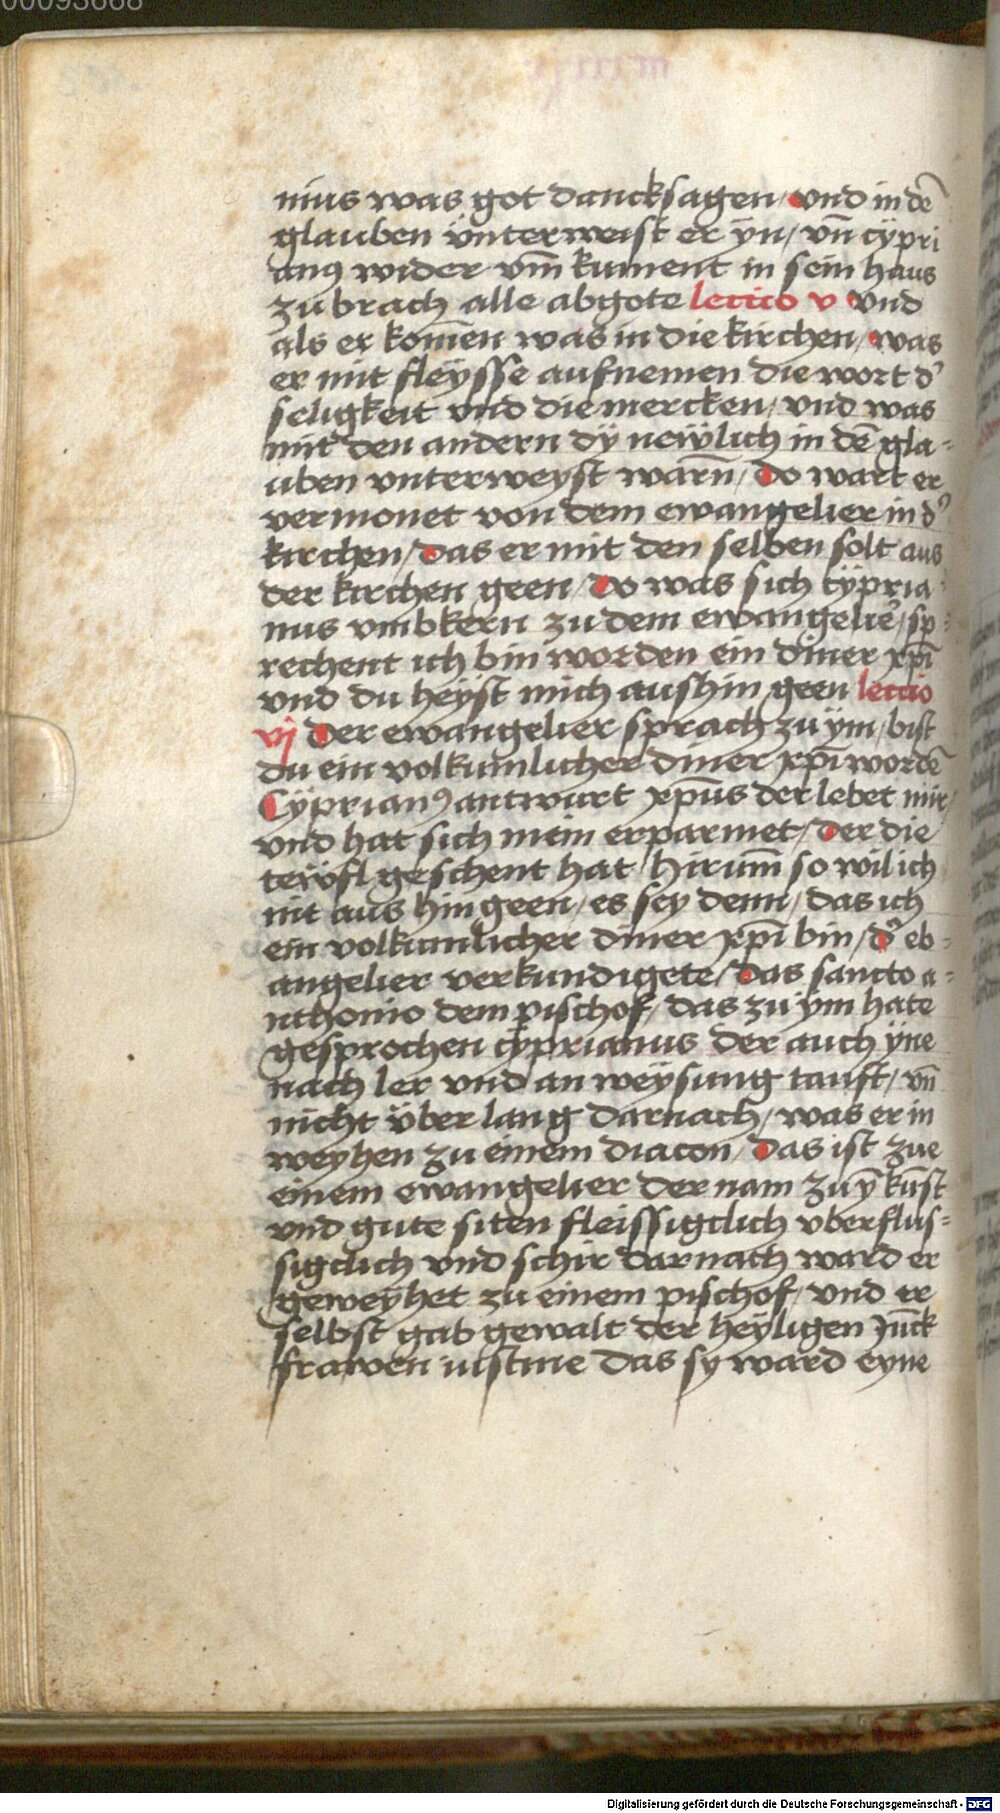 00093668
nius was got dancksagen / und in dē
glauben ünterweist er ÿn / vn̄ cÿpri
anꝰ wider vm̄ kument in sein haus
zu brach alle abgote lectio v und
als er kom̄en was in die kirchen / was
er mit fleÿsse aufnemen die wort d'
seligkeit vnd die mercken / vnd was
mit den andern dÿ neẅlich in dē gla-
uben vnterweyst warn̄ / Do wart er
vermonet von dem ewangelier in d'
kirchen / Das er mit den selben solt aus
der kirchen geen / Do was sich cÿpria-
nus vmbkern zu dem ewangelie' / sp-
rechent ich bin worden ein diner xp̄i
vnd du heÿst mich aushin geen lectio
vj Der ewangelier sprach zu ÿm / bist
du ein volkumlicher diner xp̄i wordē
Cÿprianꝰ antwurt xp̄us der lebet mir /
vnd hat sich mein erparmet / Der die
teẅfl geschent hat / hirum̄ so wil ich
nit aus hin geen / es sey denn / das ich
ein volkumlicher diner xp̄i bin / d' eb-
angelier verkundigete / Das sancto a-
nthonio dem pischof / das zu ÿm hate
gesprochen cÿprianus der auch ÿne
nach ler vnd an weÿsung tauft / vn̄
nicht über lang darnach / was er in
weyhen zu einem diacon / Das ist zue
einem ewangelier der nam zu ȳ kūst
vnd gute siten fleissigclich vberflus-
sigclich vnd schir darnach ward er
geweyhet zu einem pischof / vnd er
selbst gab gewalt der heÿligen Jūck
frawen iustine das sy ward eyne
Digitalisierung gefördert durch die Deutsche Forschungsgemeinschaft - DFG